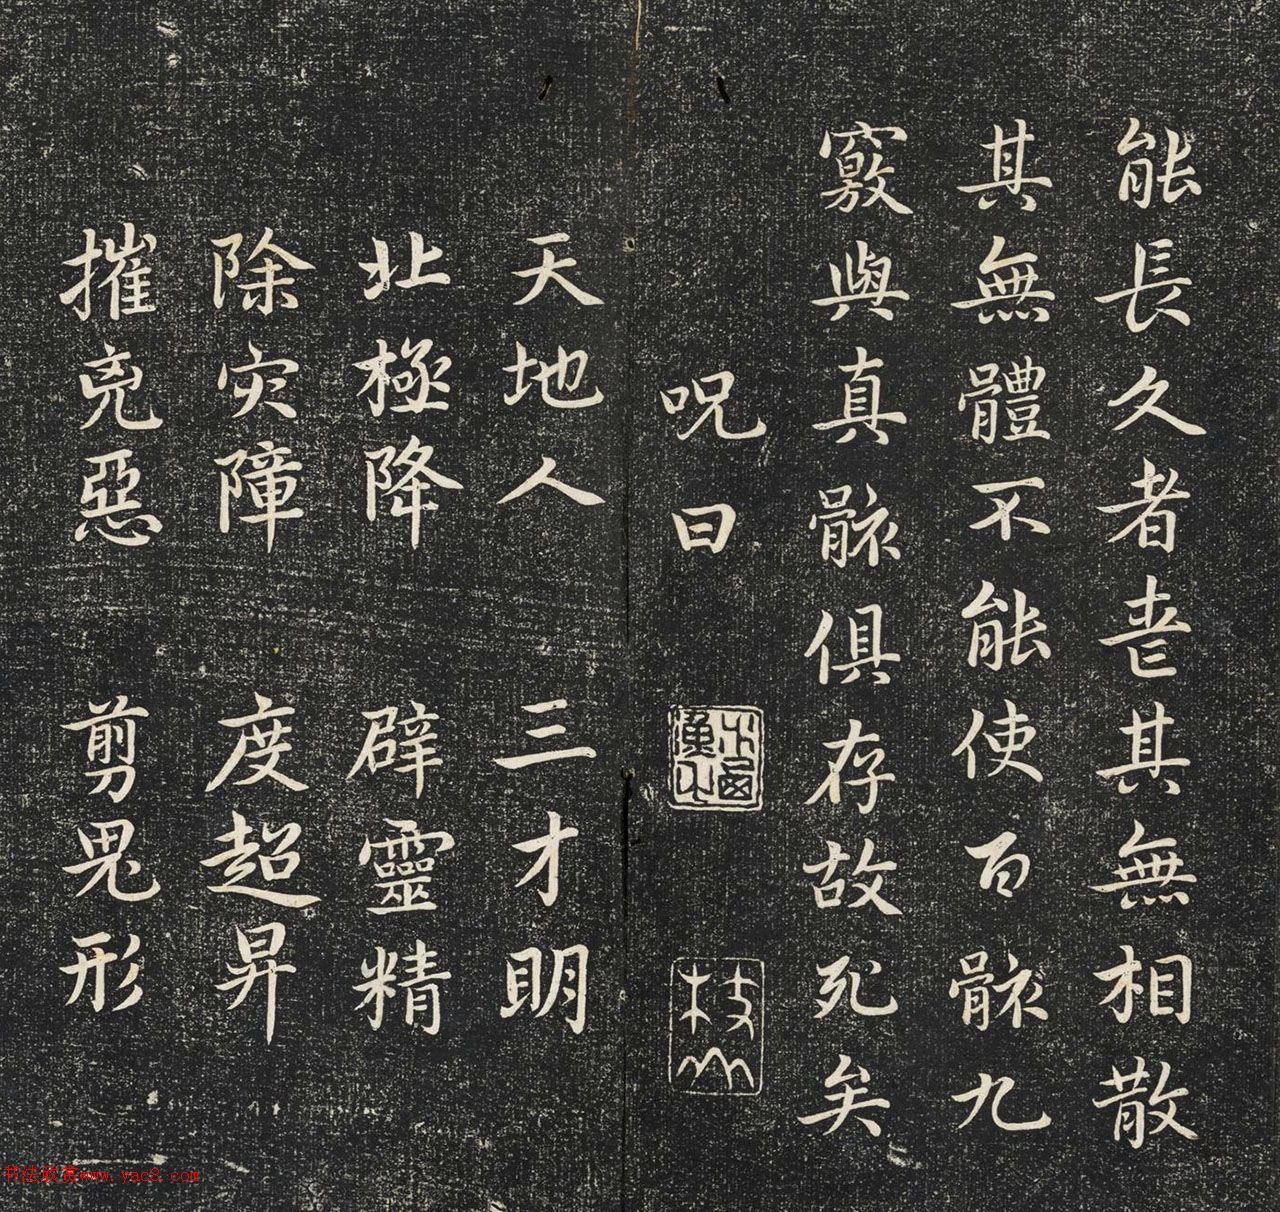 能長久者其無相散
其無體不能使百骸九
竅與真骸俱存故死矣
呪曰
枝山
天地人 三才明
北極降 辟靈精
除灾障 度超昇
摧兇惡 剪鬼形
书法欣赏www.yac8.com